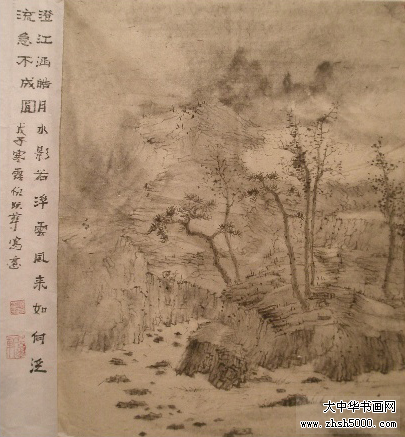 澄江涵皓月水影若浮雲風來如何泛
流急不成圓
戊子寒露 寫意
大中华书画网
www.zhsh5000.com